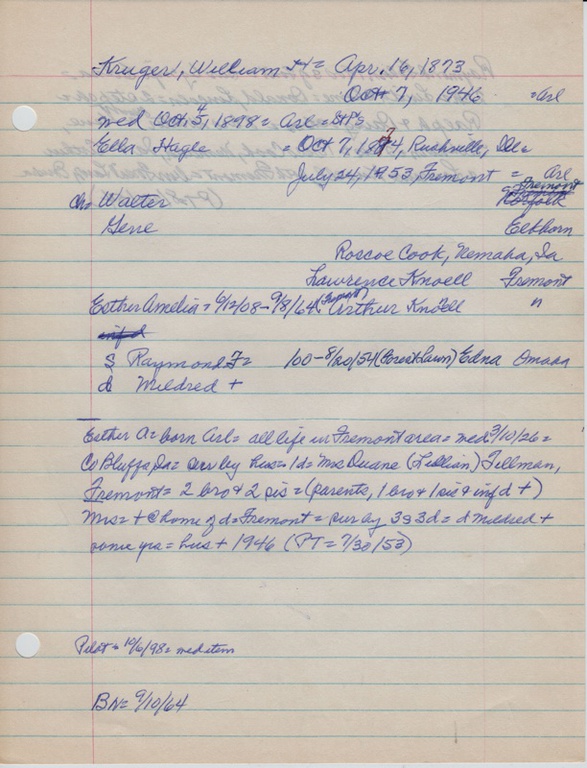 Kruger, William H = Apr. 16, 1873
Oct 7, 1946 = Arl
med Oct 4/5, 1898 = Arl = StP's
Ella Hagle = Oct 7, 1874, Rushville, Ill =
July 24, 1953, Fremont = Arl
ch = Walter Fremont Norfolk
Gene Elkhorn
Roscoe Cook, Nemaha, Ia
Lawrence Knoell Fremont
Esther Amelia = 6/12/08 - 9/8/64 (Fremont) Arthur Knoell "
inf d
S Raymond F = 100 - 8/20/54 (Forest Lawn) Edna Omaha
d Mildred +
Esther A = born Arl = all life in Fremont area = med 3/10/26 =
Co Bluffs, Ia = surv by hus = 1d = Mrs Duane (Lillian) Tillman,
Fremont = 2 bro & 2 sis = (parents, 1 bro & 1 sis & inf d +)
Mrs = + @ home of d = Fremont = sur by 3s 3d = d Mildred +
some yrs = hus + 1946 (PT = 7/30/53)
Pilot = 10/6/98 = med item
BN = 9/10/64